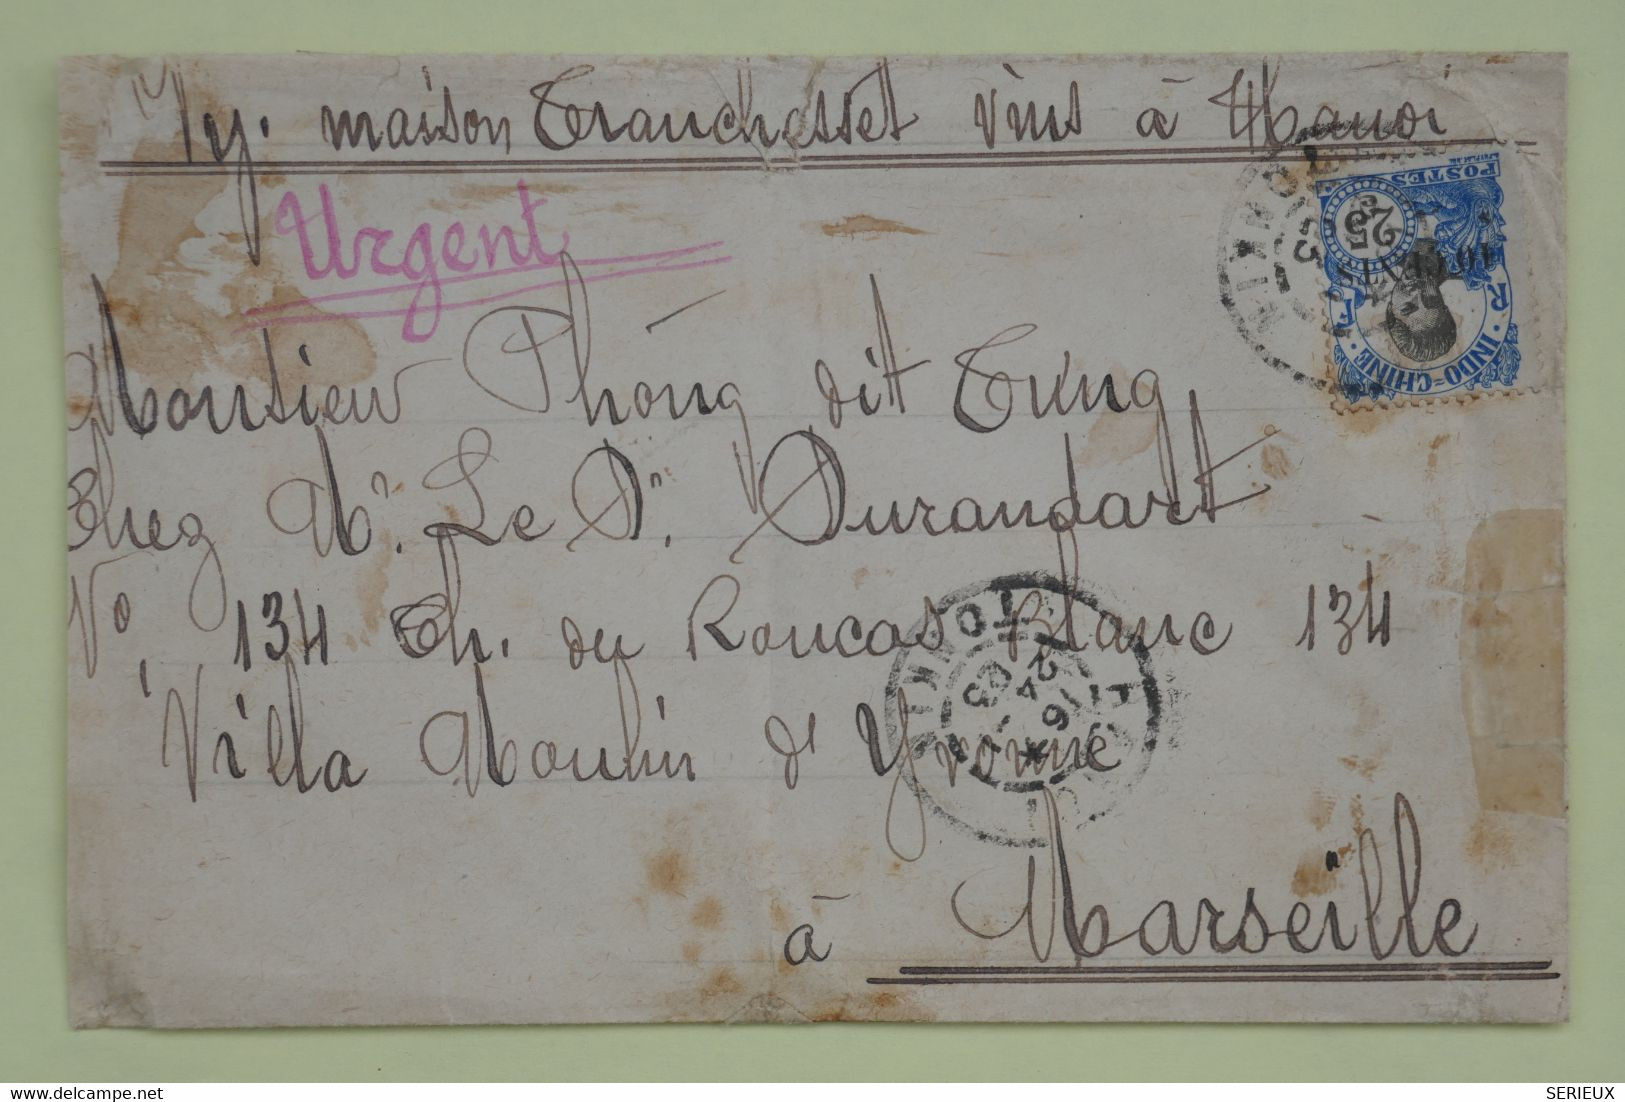 Ny. maison Tranchesset vins à Hanoi
Urgent
Monsieur Phóng dit Tung
Chez Mr. Le Dr. Durandart
No, 134 Ch. du Roucas Blanc 134
Villa Moulin d'Yvonne
à Marseille
POSTES
25
10 CENTS
R. INDO-CHINE. F.
TONKIN
TONKIN
16
24
23
SERIEUX